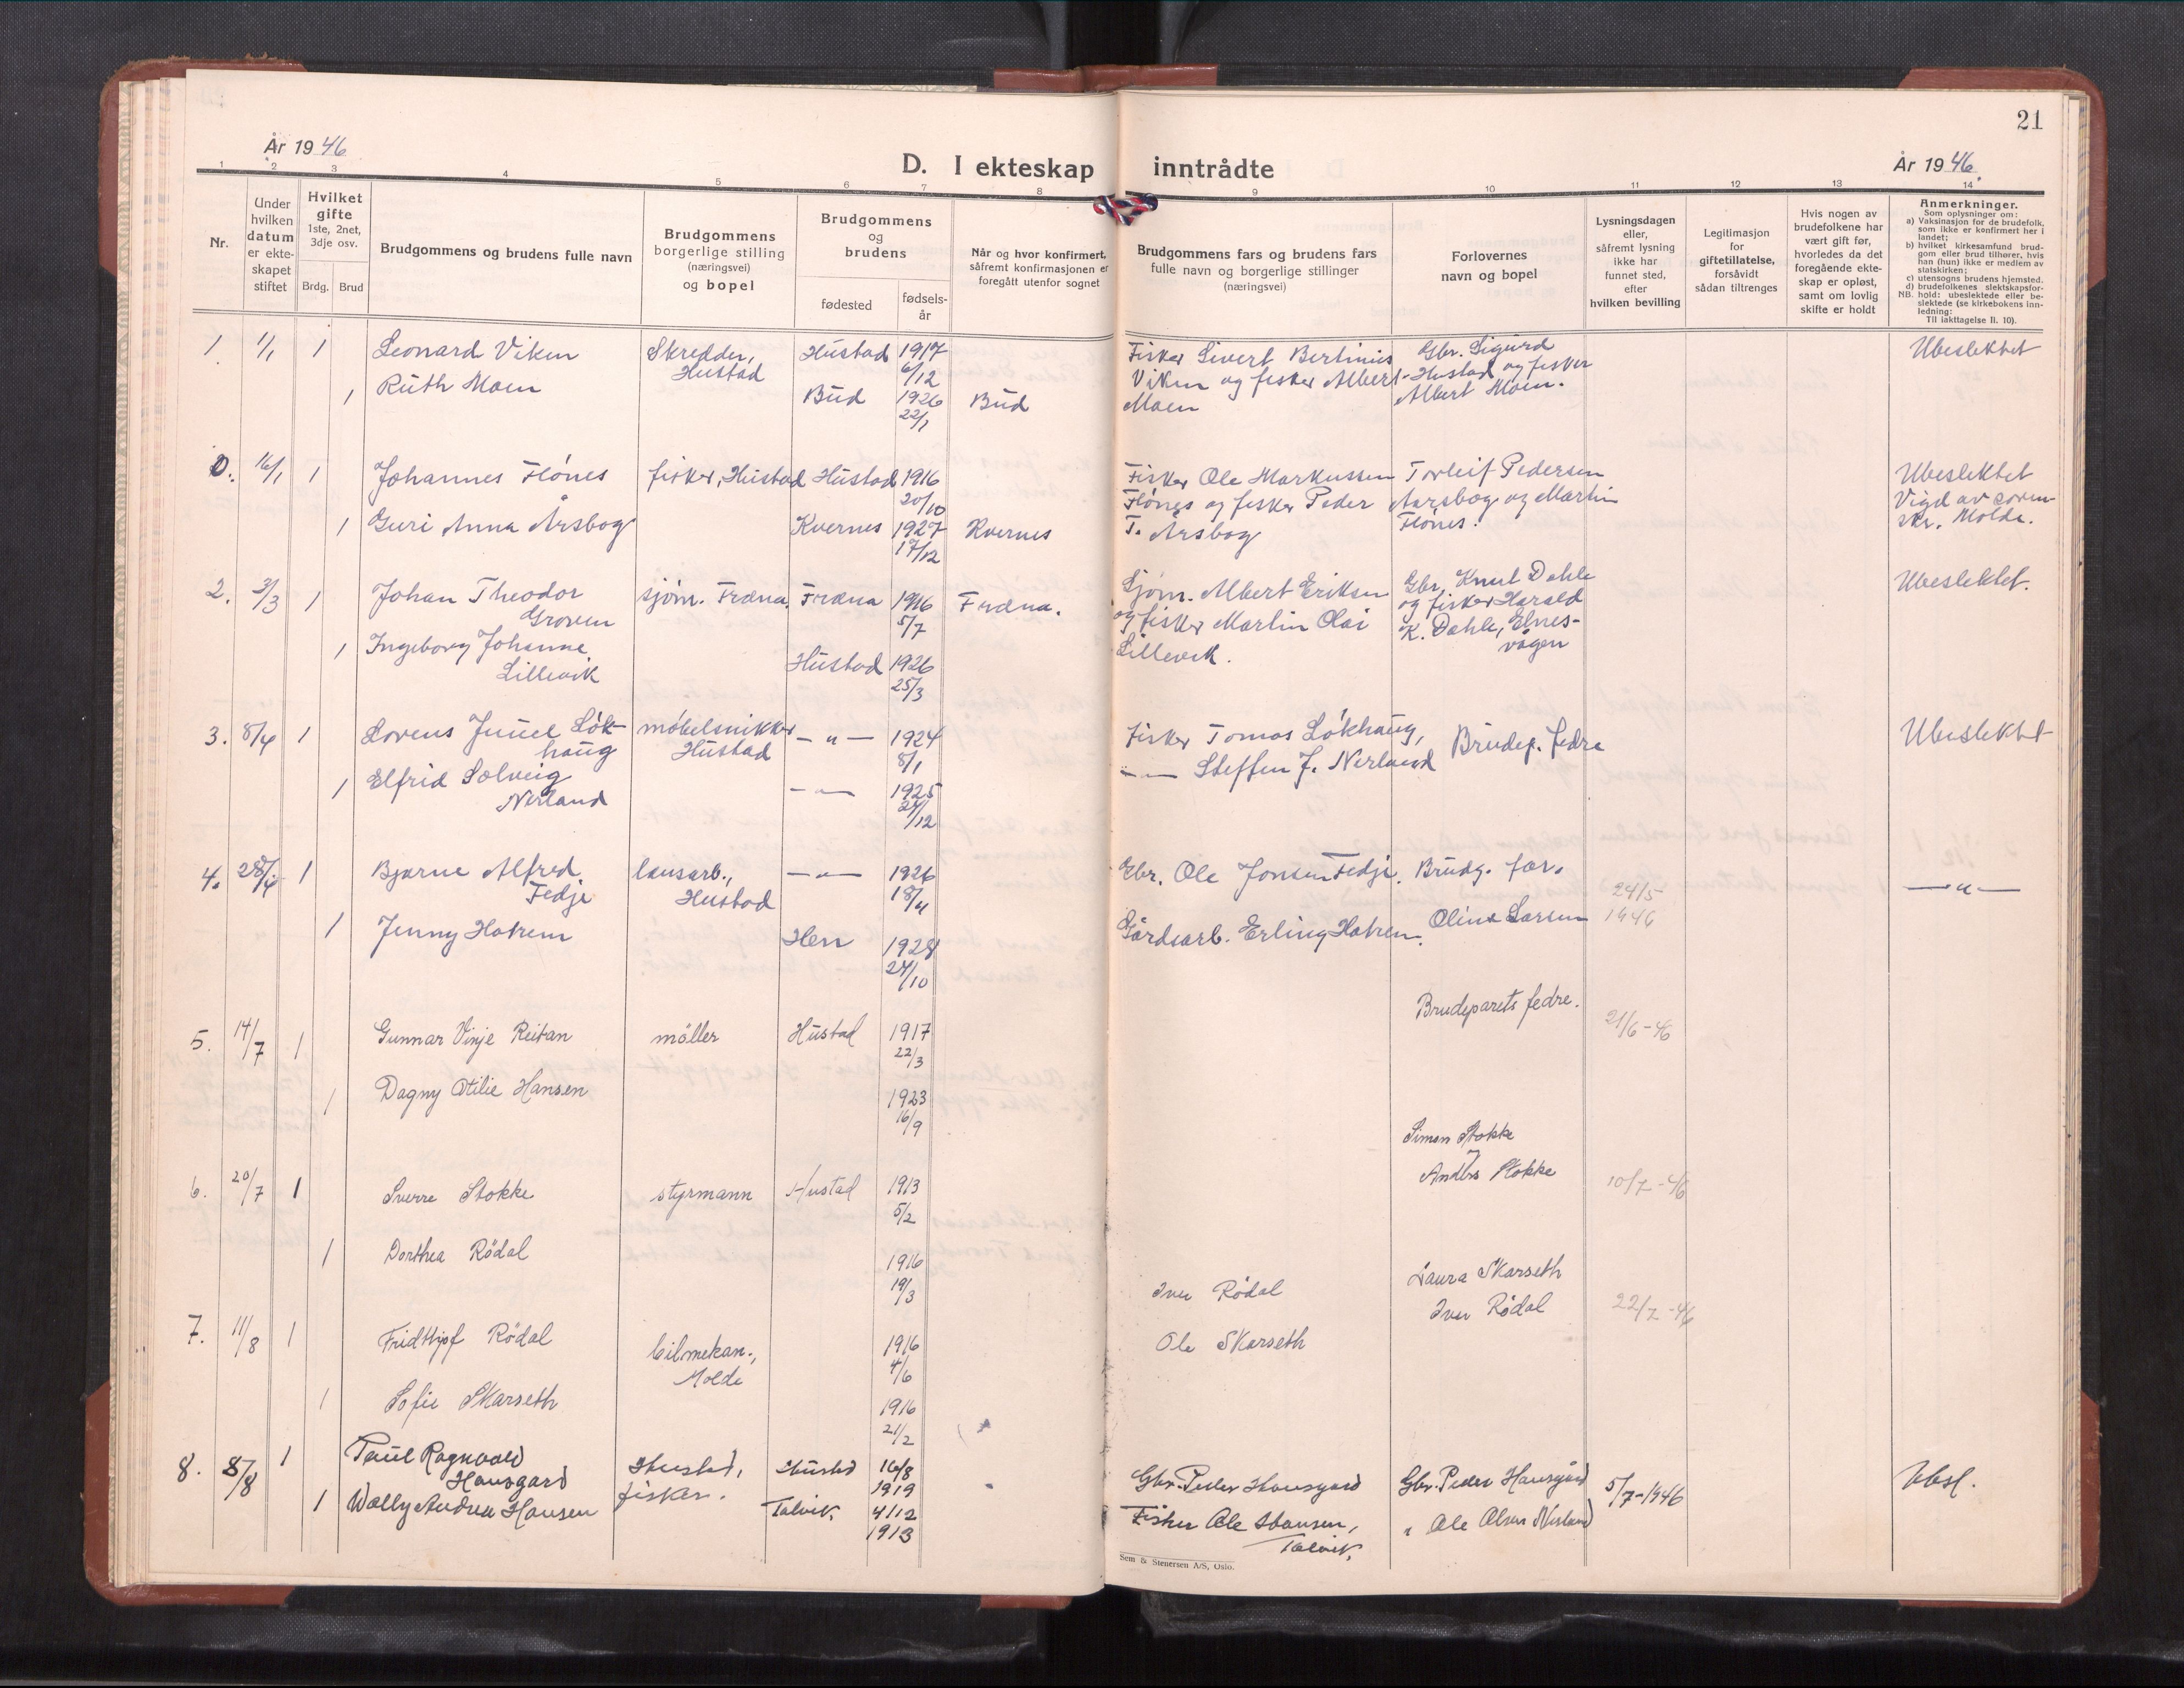 21
År 1946
D. I ekteskap inntrådte
År 1946.
1 2 3 4 5 6 7 8 9 10 11 12 13 14
Nr.
Under hvilken datum er ekteskapet stiftet
Hvilket gifte 1ste, 2net, 3dje osv.
Brdg. Brud
Brudgommens og brudens fulle navn
Brudgommens borgerlige stilling (næringsvei) og bopel
Brudgommens og brudens
fødested
fødselsår
Når og hvor konfirmert, såfremt konfirmasjonen er foregått utenfor sognet
Brudgommens fars og brudens fars fulle navn og borgerlige stillinger (næringsvei)
Forlovernes navn og bopel
Lysningsdagen eller, såfremt lysning ikke har funnet sted, efter hvilken bevilling
Legitimasjon for giftetillatelse, forsåvidt sådan tiltrenges
Hvis nogen av brudefolkene har vært gift før, hvorledes da det foregående ekteskap er opløst, samt om lovlig skifte er holdt
Anmerkninger.
Som oplysninger om:
a) Vaksinasjon for de brudefolk, som ikke er konfirmert her i landet;
b) hvilket kirkesamfund brudgom eller brud tilhører, hvis han (hun) ikke er medlem av statskirken;
c) utensogns brudens hjemsted.
d) brudefolkenes slektskapsforhold: ubeslektede eller beslektede (se kirkebokens innledning:
NB.
Til iakttagelse II. 10).
1 1/1 1 Leonard Viken Skredder, Hustad Hustad 1917 6/12
1 Ruth Moen Bud 1926 22/1 Bud
Fisker Sivert Bertinius Viken og fisker Albert Moen
Gbr. Sigurd Hustad og fisker Albert Moen.
Ubeslektet
0. 16/1 1 Johannes Flónes fisker, Hustad Hustad 1916 20/10
1 Guri Anna Årsbog Kvernes 1927 17/12 Kvernes
Fisker Ole Markussen Flónes og fisker Peder T. Årsbog
Torleif Pedersen Aarsbog og Martin Flónes.
Ubeslektet
Vigd av sorenskr. Molde.
2. 3/3 1 Johan Theodor Groven sjóm. Fræna. Fræna 1916 5/7 Fræna.
1 Ingeborg Johanne Lillevik Hustad 1926 25/3
Sjóm. Albert Eriksen og fisker Martin Olai Lillevik.
Gbr. Knut Dahle og fisker Harald K. Dahle, Elnesvågen
Ubeslektet.
3. 8/4 1 Lorens Juuel Lókhaug móbelsnikker Hustad — " — 1924 8/1
1 Elfrid Solveig Nerland — " — 1925 24/12
Fisker Tomas Lókhaug,
— " — Steffen J. Nerland
Brudep. fedre
Ubeslektet
4. 28/4 1 Bjarne Alfred Fedje lausarb., Hustad — " — 1926 18/4
1 Jenny Hatrem Hen 1928 24/10
Gbr. Ole Jonsen Fedje.
Gårdsarb. Erling Hatrem.
Brudg. far.
Oline Larsen
24/5 1946
— " —
5. 14/7 1 Gunnar Vinje Reitan møller Hustad 1917 22/3
1 Dagny Otilie Hansen 1923 16/9
Brudeparets fedre.
21/6-46
6. 20/7 1 Sverre Stokke styrmann Hustad 1913 5/2
1 Dorthea Rödal 1916 19/3
Simon Stokke
og
Anders Stokke
10/7-46
7. 11/8 1 Fridthjof Rödal bilmekan., Molde 1916 4/6
1 Sofie Skarseth 1916 21/2
Iver Rödal
Ole Skarseth
Laura Skarseth
Iver Rödal
22/7-46
8. 8/8 1 Paul Ragnvald Hausgard Hustad, fisker. Hustad 16/8 1919
1 Wally Andrea Hansen Talvik. 4/12 1913
Gbr. Peder Hausgard
Fisker Ole Hansen, Talvik.
Gbr. Peder Hausgård
" Ole Olsen Nerland
5/7-1946
Ubsl.
Sem & Stenersen A/S, Oslo.